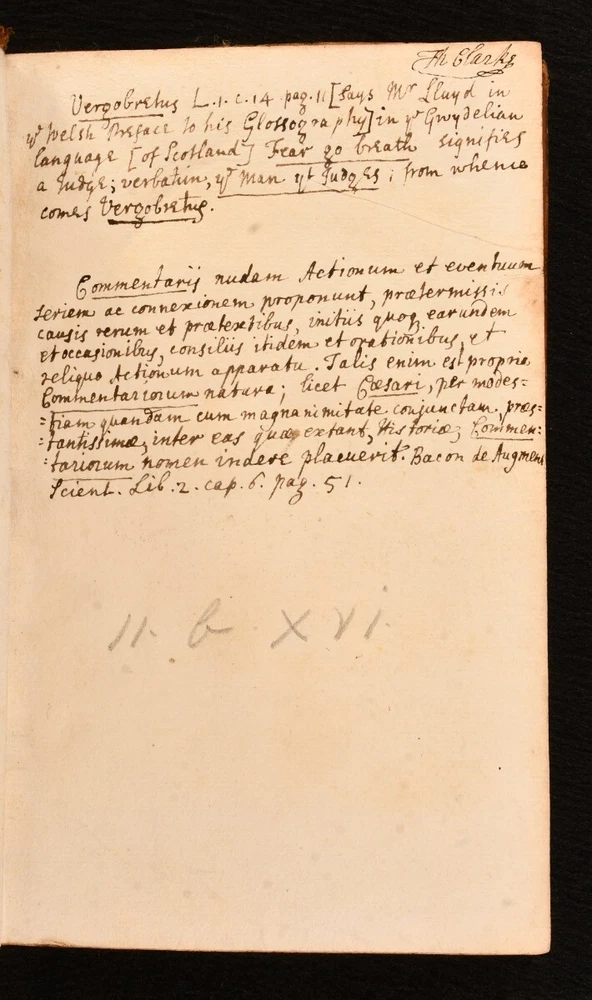 Th Clarke
Vergobretus L.1.c.14 pag.11 [says Mr Lluyd in
ye Welsh Preface to his Glossography] in ye Gwydelian
language [of Scotland] Fear go breath signifies
a Judge; verbatim, ye Man yt Judges; from whence
comes Vergobretus.
Commentarij nudam Actionum et eventuum
seriem ac connexionem proponunt, prætermissis
causis rerum et prætextibus, initiis quoq earundem
et occasionibus, consiliis itidem et orationibus, et
reliquo Actionum apparatu. Talis enim est propria
Commentariorum natura; licet Cæsari, per modes=
=tiam quandam cum magnanimitate conjunctam, præs=
=tantissimæ, inter eas quæ extant, Historiæ, Commen:
:tariorum nomen indere placuerit. Bacon de Augment
Scient. Lib.2. cap.6. pag.51.
11. b XVI.